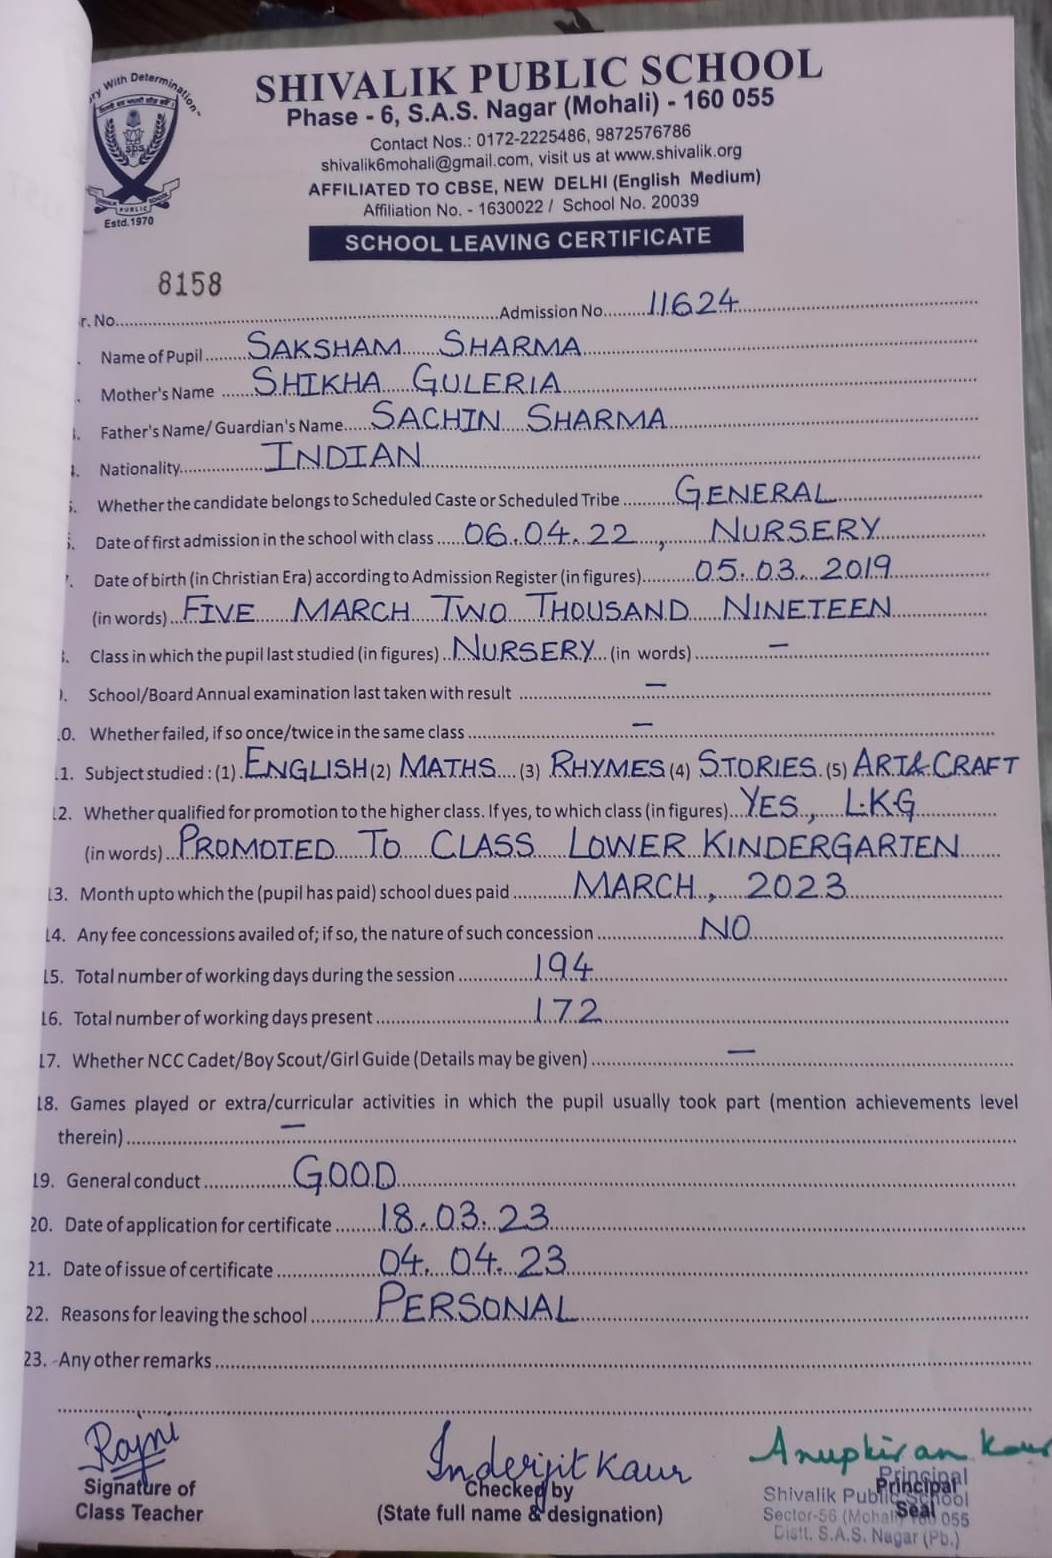 ry With Determination"
PUBLIC
Estd.1970
SHIVALIK PUBLIC SCHOOL
Phase - 6, S.A.S. Nagar (Mohali) - 160 055
Contact Nos.: 0172-2225486, 9872576786
shivalik6mohali@gmail.com, visit us at www.shivalik.org
AFFILIATED TO CBSE, NEW DELHI (English Medium)
Affiliation No. - 1630022 / School No. 20039
SCHOOL LEAVING CERTIFICATE
8158
r. No. Admission No. 11624
. Name of Pupil SAKSHAM SHARMA
. Mother's Name SHIKHA GULERIA
. Father's Name/ Guardian's Name SACHIN SHARMA
. Nationality INDIAN
. Whether the candidate belongs to Scheduled Caste or Scheduled Tribe GENERAL
. Date of first admission in the school with class 06.04.22, NURSERY
. Date of birth (in Christian Era) according to Admission Register (in figures) 05.03.2019
(in words) FIVE MARCH TWO THOUSAND NINETEEN
. Class in which the pupil last studied (in figures) NURSERY (in words) –
. School/Board Annual examination last taken with result –
0. Whether failed, if so once/twice in the same class –
1. Subject studied : (1) ENGLISH (2) MATHS (3) RHYMES (4) STORIES (5) ART & CRAFT
12. Whether qualified for promotion to the higher class. If yes, to which class (in figures) YES, L.K.G
(in words) PROMOTED TO CLASS LOWER KINDERGARTEN
13. Month upto which the (pupil has paid) school dues paid MARCH, 2023
14. Any fee concessions availed of; if so, the nature of such concession NO
15. Total number of working days during the session 194
16. Total number of working days present 172
17. Whether NCC Cadet/Boy Scout/Girl Guide (Details may be given) –
18. Games played or extra/curricular activities in which the pupil usually took part (mention achievements level
therein) –
19. General conduct GOOD
20. Date of application for certificate 18.03.23
21. Date of issue of certificate 04.04.23
22. Reasons for leaving the school PERSONAL
23. Any other remarks
Rajni Inderjit Kaur Anupkiran Kaur
Signature of
Class Teacher
Checked by
(State full name & designation)
Principal
Seal
Principal
Shivalik Public School
Sector-56 (Mohali) 160 055
Distt. S.A.S. Nagar (Pb.)